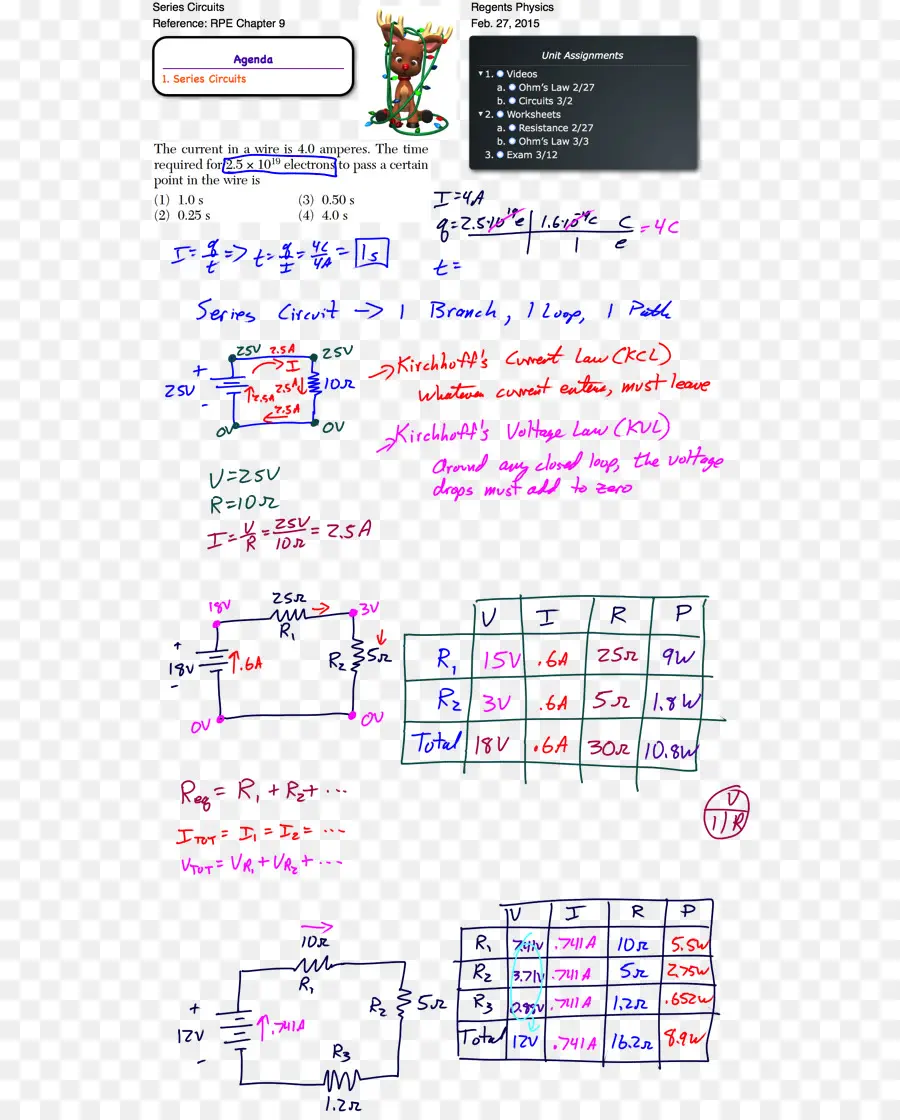 Series Circuits
Reference: RPE Chapter 9
Regents Physics
Feb. 27, 2015
Agenda
1. Series Circuits
Unit Assignments
1. Videos
a. Ohm's Law 2/27
b. Circuits 3/2
2. Worksheets
a. Resistance 2/27
b. Ohm's Law 3/3
3. Exam 3/12
The current in a wire is 4.0 amperes. The time
required for 2.5 × 10¹⁹ electrons to pass a certain
point in the wire is
(1) 1.0 s
(3) 0.50 s
(2) 0.25 s
(4) 4.0 s
I=4A
q=2.5·10¹⁹e | 1.6·10⁻¹⁹C C = 4C
1 e
t=
I = q/t => t = q/I = 4C/4A = 1s
Series Circuit -> 1 Branch, 1 Loop, 1 Path
25V 2.5A 25V
+ I
25V 2.5A 2.5A 10Ω
- 2.5A
0V 0V
Kirchhoff's Current Law (KCL)
Whatever current enters, must leave
Kirchhoff's Voltage Law (KVL)
Around any closed loop, the voltage
drops must add to zero
V=25V
R=10Ω
I = V/R = 25V/10Ω = 2.5A
25Ω
18V 3V
R₁
+
18V .6A R₂ 5Ω
-
0V 0V
V I R P
R₁ 15V .6A 25Ω 9W
R₂ 3V .6A 5Ω 1.8W
Total 18V .6A 30Ω 10.8W
Req = R₁ + R₂ + ...
ITOT = I₁ = I₂ = ...
VTOT = VR₁ + VR₂ + ...
V
I R
10Ω
R₁
R₂ 5Ω
+
12V .741A
-
R₃
1.2Ω
V I R P
R₁ 7.41V .741A 10Ω 5.5W
R₂ 3.71V .741A 5Ω 2.75W
R₃ 0.89V .741A 1.2Ω .652W
Total 12V .741A 16.2Ω 8.9W